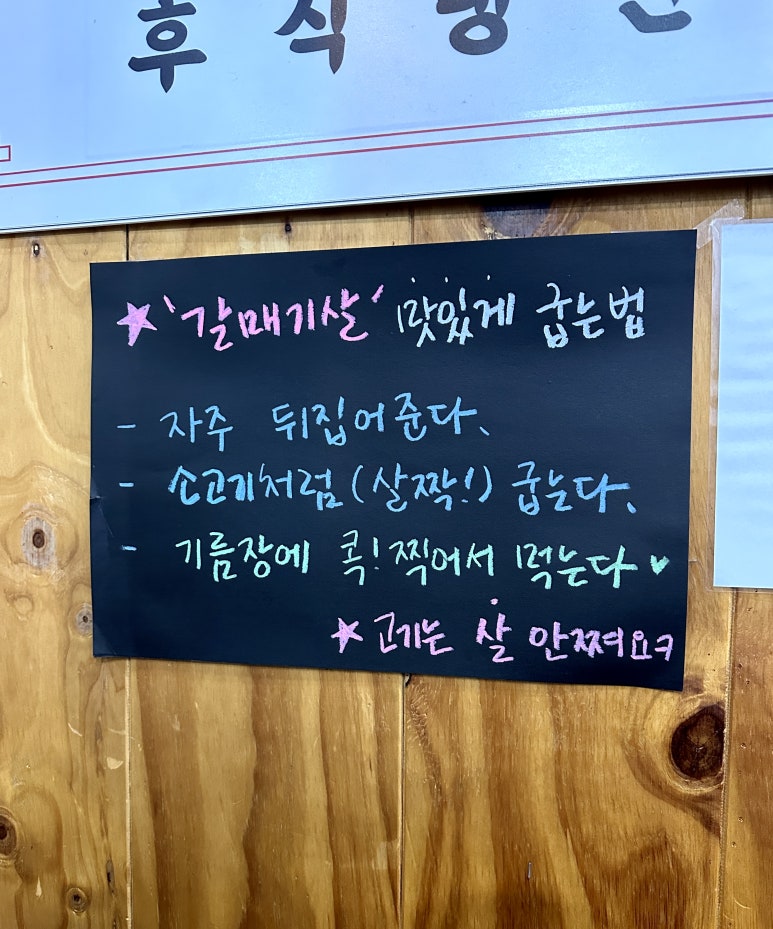 후식냉면
★ '갈매기살' 맛있게 굽는법
- 자주 뒤집어준다.
- 소고기처럼(살짝!) 굽는다.
- 기름장에 콕! 찍어서 먹는다♥
★ 고기는 살 안쪄요ㅋ